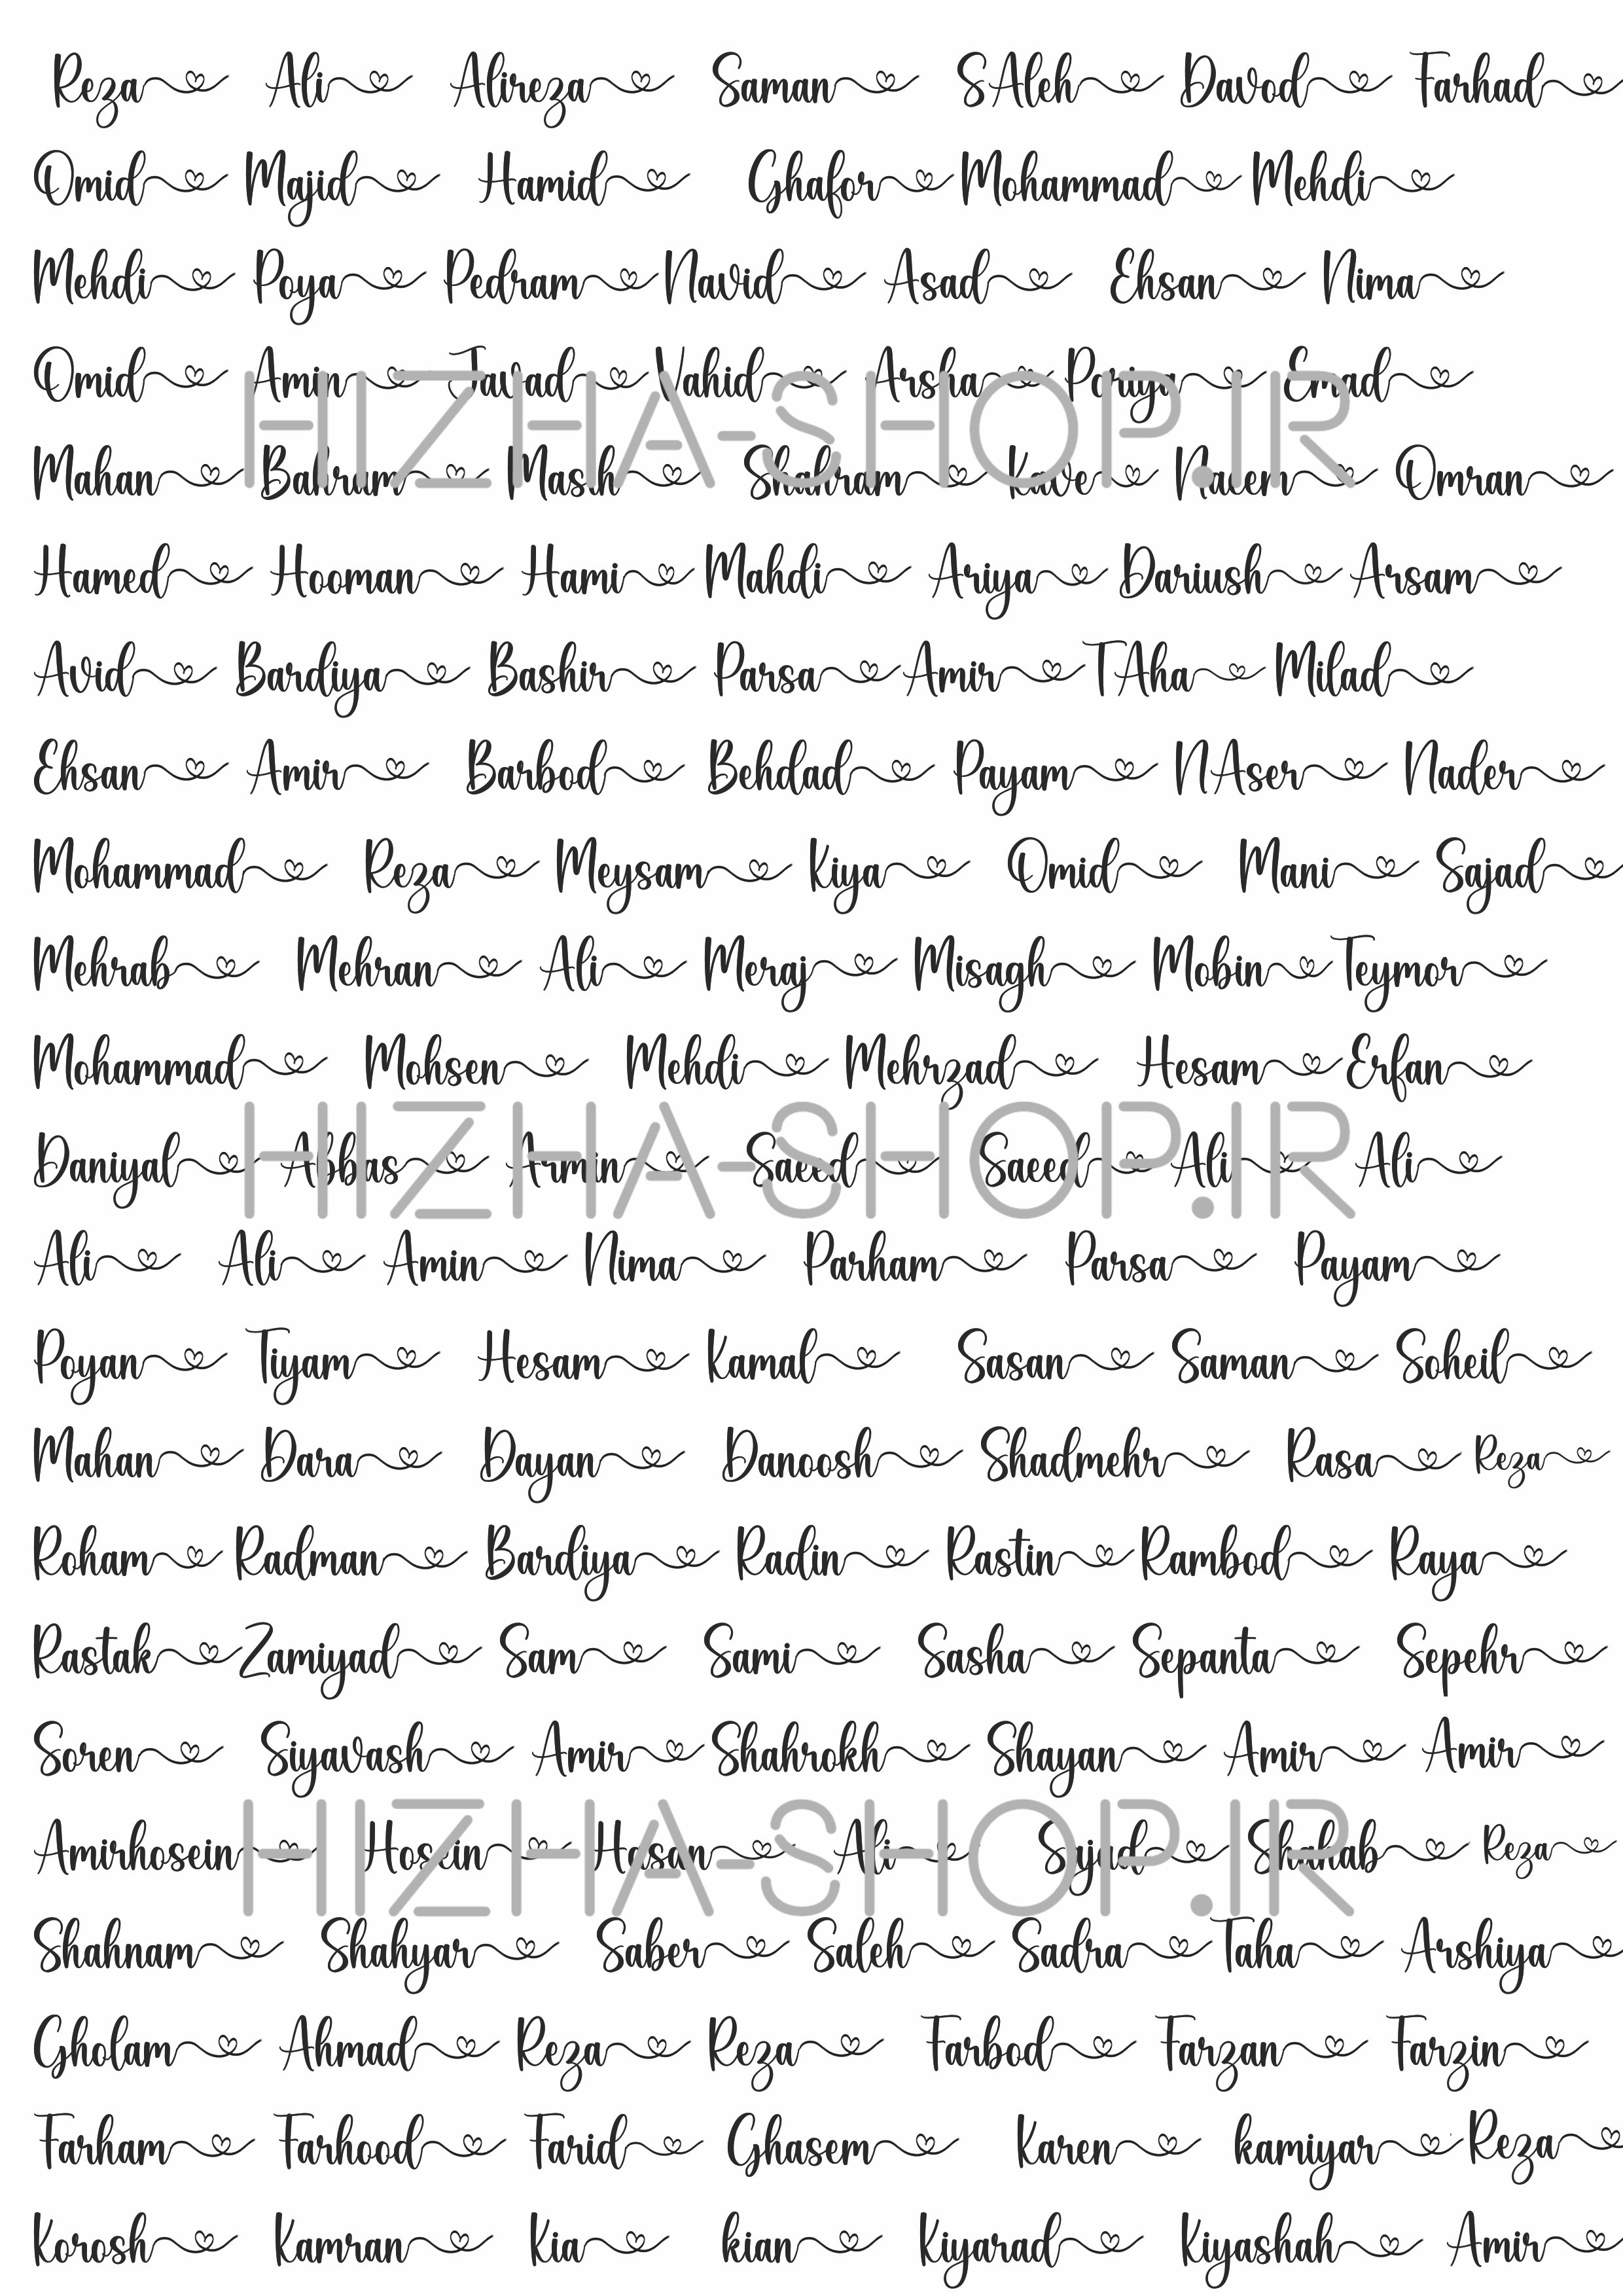 Reza Ali Alireza Saman SAleh Davod Farhad
Omid Majid Hamid Ghafor Mohammad Mehdi
Mehdi Poya Pedram Navid Asad Ehsan Nima
Omid Amin Javad Vahid Arsha Poriya Emad
HIZHA-SHOP.IR
Mahan Bahram Masih Shahram Kave Naeem Omran
Hamed Hooman Hami Mahdi Ariya Dariush Arsam
Avid Bardiya Bashir Parsa Amir TAha Milad
Ehsan Amir Barbod Behdad Payam NAser Nader
Mohammad Reza Meysam Kiya Omid Mani Sajad
Mehrab Mehran Ali Meraj Misagh Mobin Teymor
Mohammad Mohsen Mehdi Mehrzad Hesam Erfan
HIZHA-SHOP.IR
Daniyal Abbas Armin Saeed Saeed Ali Ali
Ali Ali Amin Nima Parham Parsa Payam
Poyan Tiyam Hesam Kamal Sasan Saman Soheil
Mahan Dara Dayan Danoosh Shadmehr Rasa Reza
Roham Radman Bardiya Radin Rastin Rambod Raya
Rastak Zamiyad Sam Sami Sasha Sepanta Sepehr
Soren Siyavash Amir Shahrokh Shayan Amir Amir
HIZHA-SHOP.IR
Amirhosein Hosein Hasan Ali Sajad Shahab Reza
Shahnam Shahyar Saber Saleh Sadra Taha Arshiya
Gholam Ahmad Reza Reza Farbod Farzan Farzin
Farham Farhood Farid Ghasem Karen kamiyar Reza
Korosh Kamran Kia kian Kiyarad Kiyashah Amir